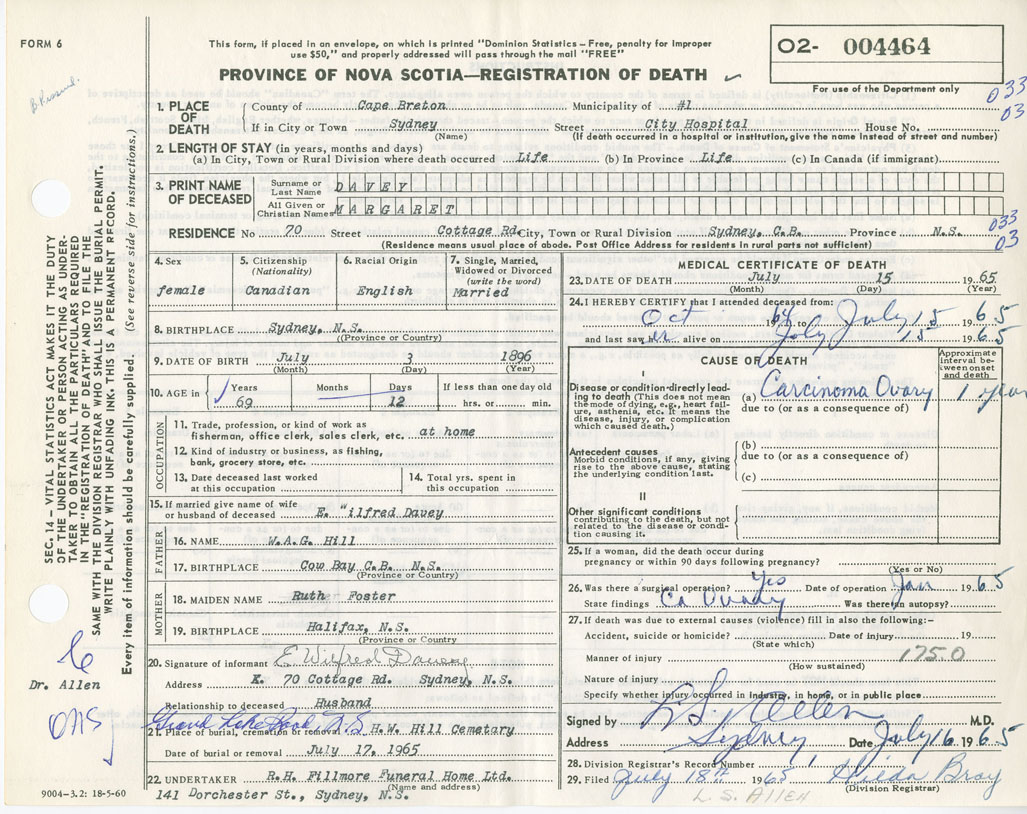 FORM 6
This form, if placed in an envelope, on which is printed "Dominion Statistics – Free, penalty for improper
use $50," and properly addressed will pass through the mail "FREE"
O2- 004464
PROVINCE OF NOVA SCOTIA—REGISTRATION OF DEATH
For use of the Department only
033
03
1. PLACE OF DEATH
County of Cape Breton Municipality of #1
If in City or Town Sydney Street City Hospital House No.
(Name) (If death occurred in a hospital or institution, give the name instead of street and number)
2. LENGTH OF STAY (in years, months and days)
(a) In City, Town or Rural Division where death occurred Life (b) In Province Life (c) In Canada (if immigrant)
3. PRINT NAME OF DECEASED
Surname or Last Name DAVEY
All Given or Christian Names MARGARET
033
03
RESIDENCE No 70 Street Cottage Rd. City, Town or Rural Division Sydney, C.B. Province N.S.
(Residence means usual place of abode. Post Office Address for residents in rural parts not sufficient)
4. Sex
female
5. Citizenship
(Nationality)
Canadian
6. Racial Origin
English
7. Single, Married,
Widowed or Divorced
(write the word)
Married
8. BIRTHPLACE Sydney, N.S.
(Province or Country)
9. DATE OF BIRTH July 3 1896
(Month) (Day) (Year)
10. AGE in Years Months Days If less than one day old
69 12 hrs. or min.
OCCUPATION
11. Trade, profession, or kind of work as
fisherman, office clerk, sales clerk, etc. at home
12. Kind of industry or business, as fishing,
bank, grocery store, etc.
13. Date deceased last worked
at this occupation
14. Total yrs. spent in
this occupation
15. If married give name of wife
or husband of deceased E. "ilfred Davey
FATHER
16. NAME W.A.G. Hill
17. BIRTHPLACE Cow Bay C.B. N.S.
(Province or Country)
MOTHER
18. MAIDEN NAME Ruth Foster
19. BIRTHPLACE Halifax, N.S.
(Province or Country)
20. Signature of informant E Wilfred Davey
Address K. 70 Cottage Rd. Sydney, N.S.
Relationship to deceased Husband
21. Place of burial, cremation or removal N.S. H.W. Hill Cemetary
Date of burial or removal July 17, 1965
22. UNDERTAKER R.H. Fillmore Funeral Home Ltd.
(Name and address)
141 Dorchester St., Sydney, N.S.
MEDICAL CERTIFICATE OF DEATH
23. DATE OF DEATH July 15 1965
(Month) (Day) (Year)
24. I HEREBY CERTIFY that I attended deceased from:
Oct 1964 to July 15 1965
and last saw alive on July 15 1965
CAUSE OF DEATH
Approximate
interval be-
tween onset
and death
I
Disease or condition directly lead-
ing to death (This does not mean
the mode of dying, e.g., heart fail-
ure, asthenia, etc. It means the
disease, injury, or complication
which caused death.)
(a) Carcinoma Ovary 1 year
due to (or as a consequence of)
Antecedent causes
Morbid conditions, if any, giving
rise to the above cause, stating
the underlying condition last.
(b)
due to (or as a consequence of)
(c)
II
Other significant conditions
contributing to the death, but not
related to the disease or condi-
tion causing it.
25. If a woman, did the death occur during
pregnancy or within 90 days following pregnancy?
(Yes or No)
26. Was there a surgical operation? Yes Date of operation Jan 1965
State findings Ca Ovary Was there an autopsy?
27. If death was due to external causes (violence) fill in also the following:-
Accident, suicide or homicide? Date of injury 19
(State which)
Manner of injury 175.0
(How sustained)
Nature of injury
Specify whether injury occurred in industry, in home, or in public place
Signed by L.S. Allen M.D.
Address Sydney Date July 16 1965
28. Division Registrar's Record Number
29. Filed July 18th 1965 Hilda Bray
(Division Registrar)
L.S. ALLEN
SEC. 14 – VITAL STATISTICS ACT MAKES IT THE DUTY
OF THE UNDERTAKER OR PERSON ACTING AS UNDER-
TAKER TO OBTAIN ALL THE PARTICULARS REQUIRED
IN THE "REGISTRATION OF DEATH" AND FILE THE
SAME WITH THE DIVISION REGISTRAR WHO SHALL ISSUE THE BURIAL PERMIT.
WRITE PLAINLY WITH UNFADING INK - THIS IS A PERMANENT RECORD.
Every item of information should be carefully supplied. (See reverse side for instructions.)
Dr. Allen
9004-3.2: 18-5-60